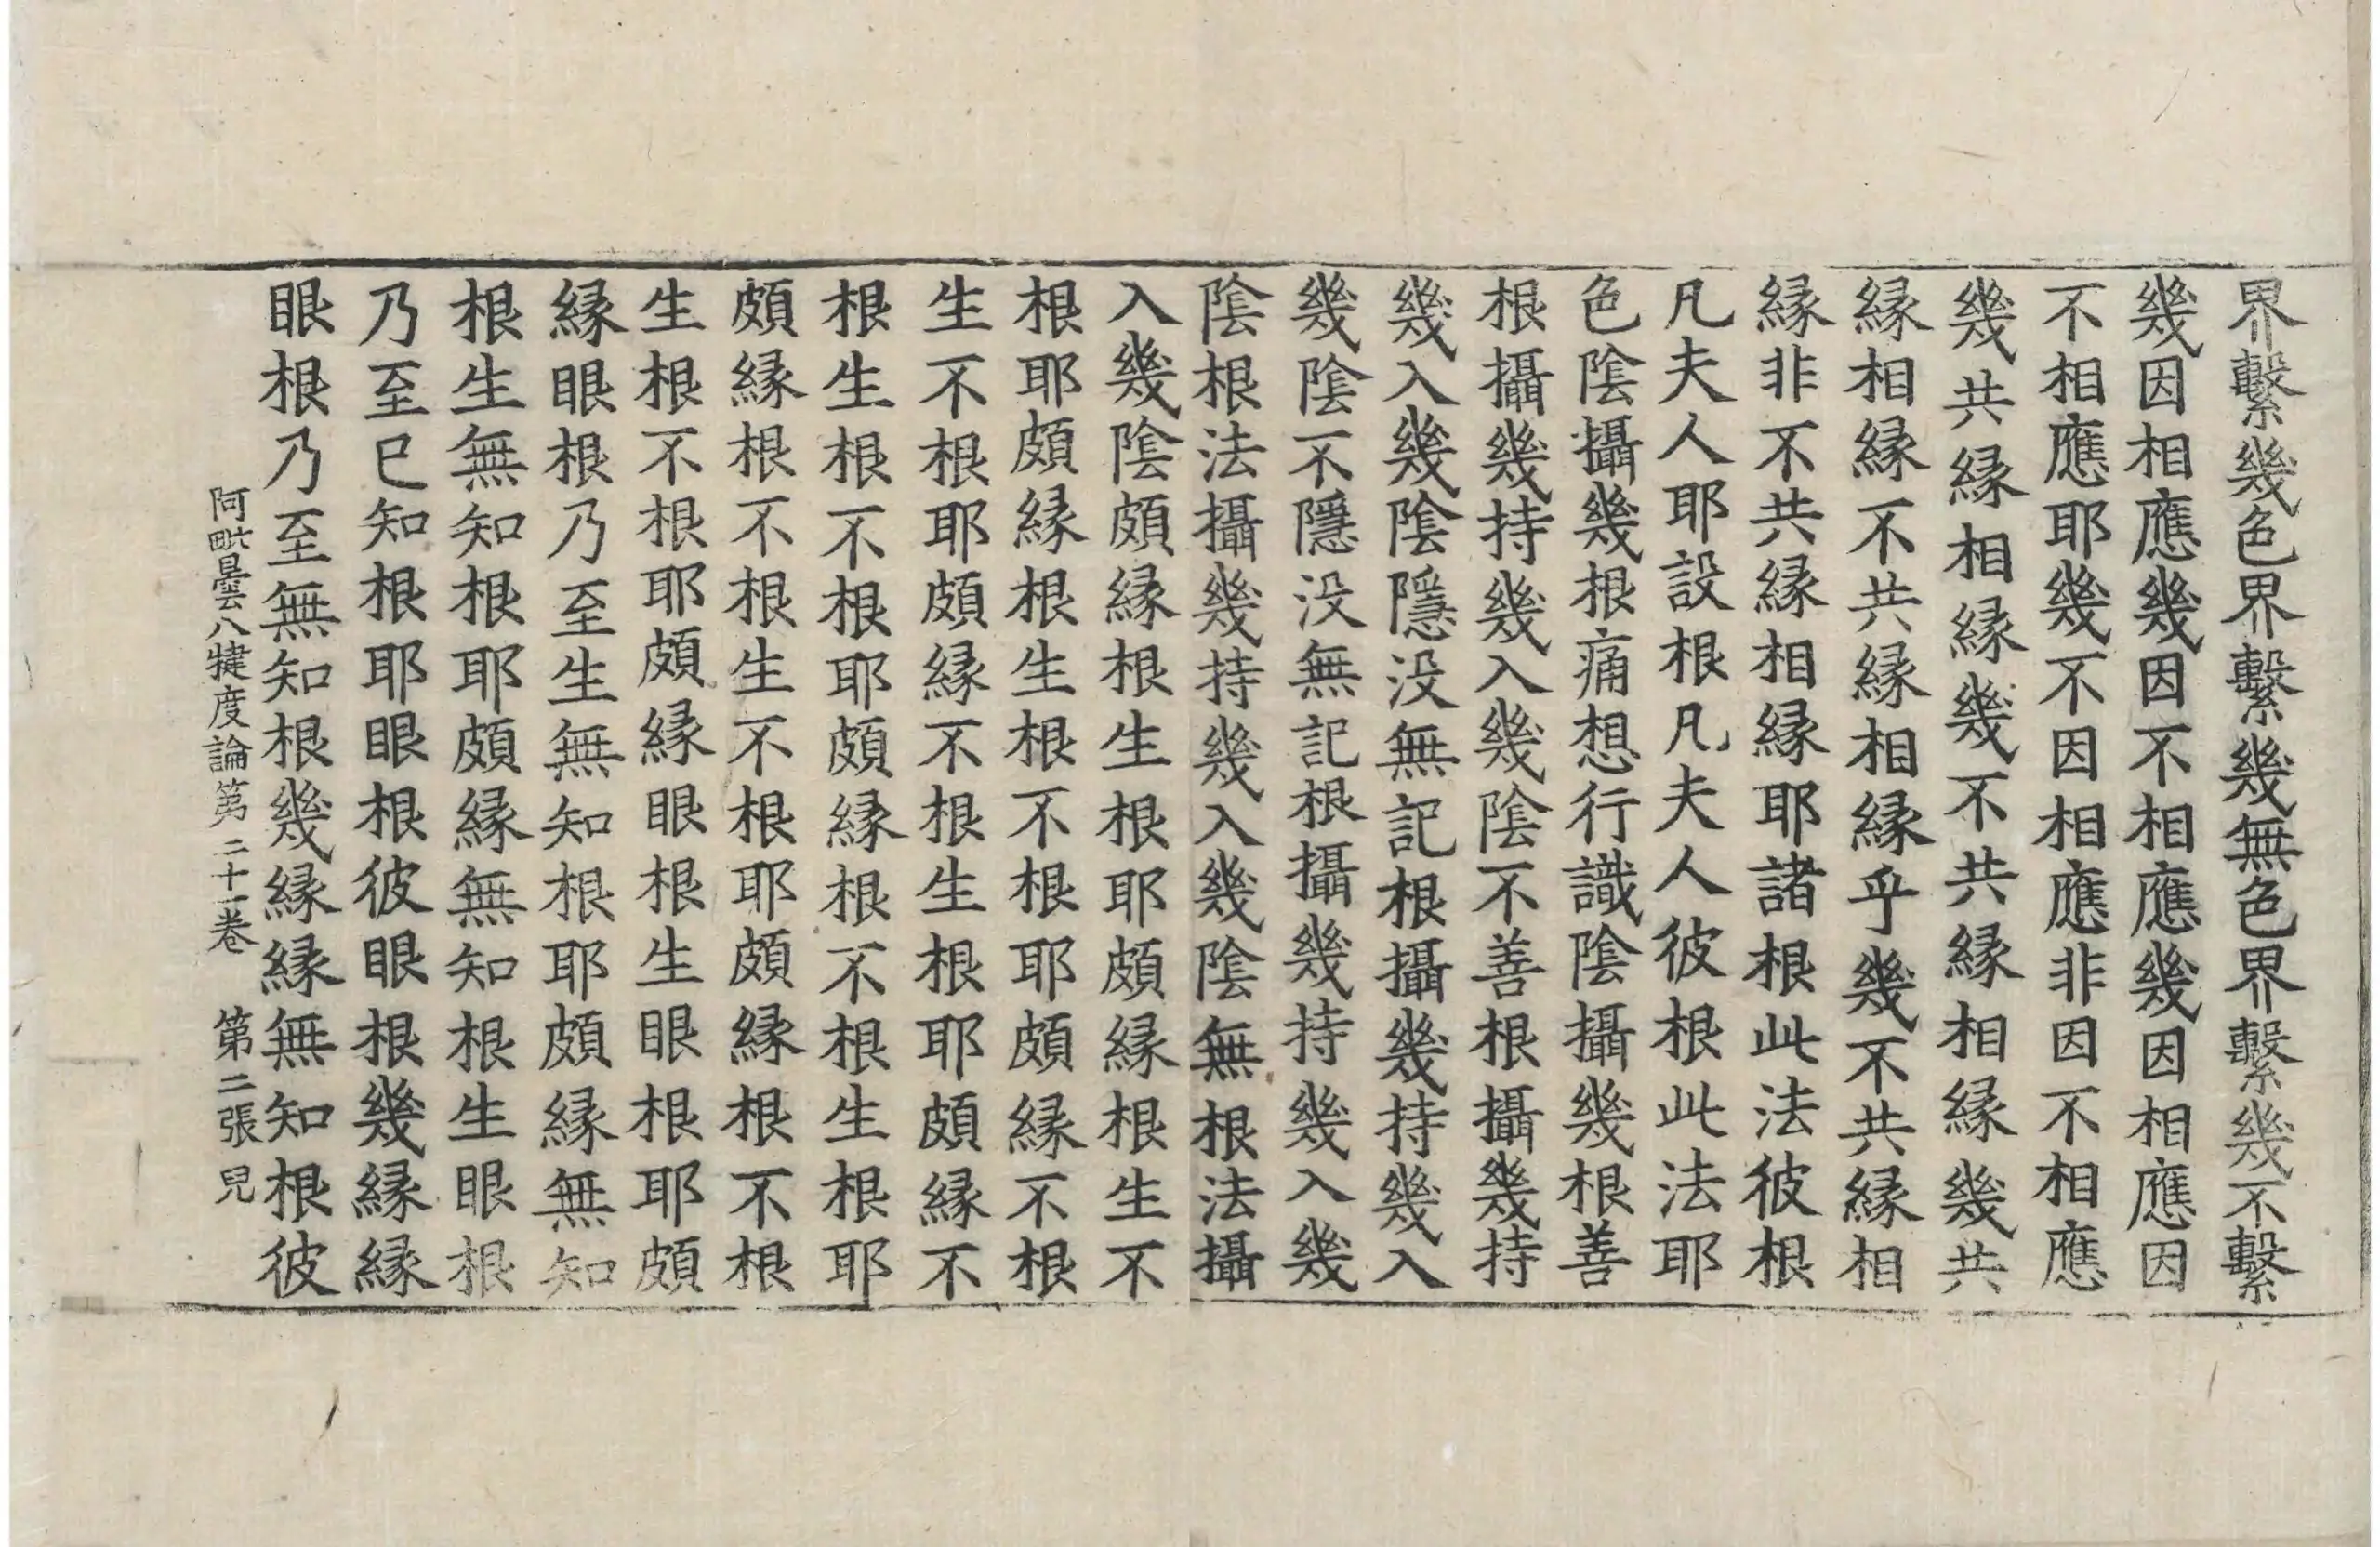 界繫幾色界繫幾無色界繫幾不繫
幾因相應幾因不相應幾因相應因
不相應耶幾不因相應非因不相應
幾共縁相縁幾不共縁相縁幾共
縁相縁不共縁相縁乎幾不共縁相
縁非不共縁相縁耶諸根此法彼根
凡夫人耶設根凡夫人彼根此法耶
色陰攝幾根痛想行識陰攝幾根善
根攝幾持幾入幾陰不善根攝幾持
幾入幾陰隱没無記根攝幾持幾入
幾陰不隱没無記根攝幾持幾入幾
陰根法攝幾持幾入幾陰無根法攝
入幾陰頗縁根生根耶頗縁根生不
根耶頗縁根生根不根耶頗縁不根
生不根耶頗縁不根生根耶頗縁不
根生根不根耶頗縁根不根生根耶
頗縁根不根生不根耶頗縁根不根
生根不根耶頗縁眼根生眼根耶頗
縁眼根乃至生無知根耶頗縁無知
根生無知根耶頗縁無知根生眼根
乃至已知根耶眼根彼眼根幾縁縁
眼根乃至無知根幾縁縁無知根彼
阿毗曇八犍度論第二十一卷　第二張 兒